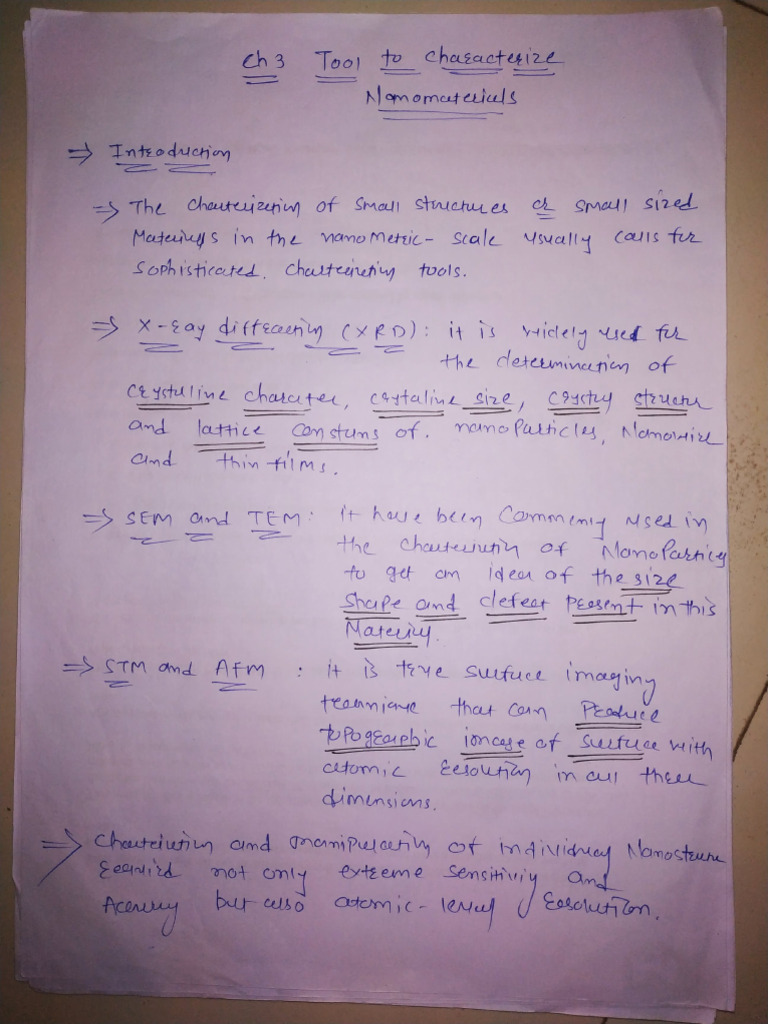 Ch 3 Tool to Characterize
Nanomaterials
⇒ Introduction
⇒ The Charterization of small structures or small sized
Materials in the nanoMetric- scale usually calls for
Sophisticated. Charteization tools.
⇒ X-ray diffraction (XRD): it is widely used for
the determination of
Crystalline character, crytaline size, crystal structur
and lattice constans of. nanoParticles, Nanowire
and thin films.
⇒ SEM and TEM: it have been Commenly used in
the Charteization of NanoParticles
to get an idea of the size
Shape and defect Present in this
Material.
⇒ STM and AFM : it is true surface imaging
technique that can Produce
topographic image of surface with
atomic resolution in all three
dimensions.
⇒ Charteization and manipulation of individual Nanostructure
required not only extreme sensitiviy and
Accuracy but also atomic-level resolution.